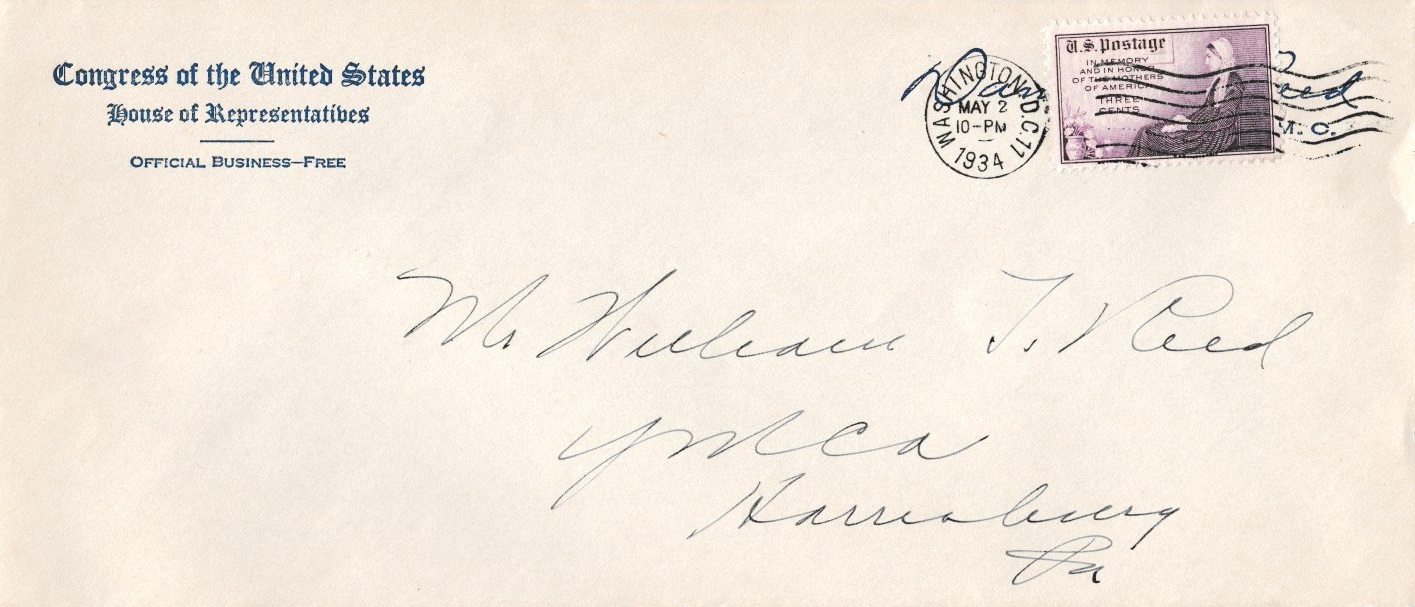 Congress of the United States
House of Representatives
OFFICIAL BUSINESS—FREE
WASHINGTON, D.C. 11
MAY 2
10-PM
1934
U.S. Postage
IN MEMORY
AND IN HONOR
OF THE MOTHERS
OF AMERICA
THREE
CENTS
M. C.
Mr William T. Reed
YMCA
Harrisburg
Pa